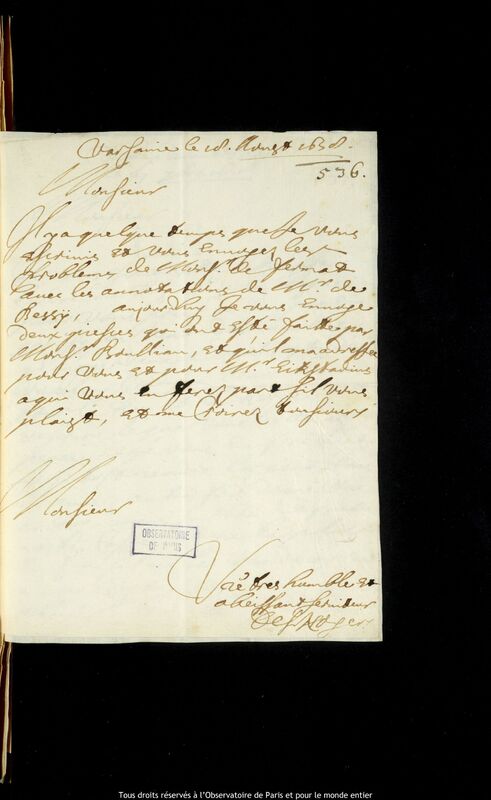 Varsavie le 18. Aoust 1658.
536.
Monsieur
Il y a quelque temps que Je vous
escrivis et vous Envoyez les
Problemes de Monsr. de Fermat
avec les annotations de Mr. de
Bessy, aujourdhuy Je vous Envoye
deux pieces qui ont esté faittes par
Monsr. Boulliau, et qu'il m'a adressées
pour vous et pour Mr. Eikstadius
a qui vous en ferez part s'il vous
plaist, et me Croirez tousiours
Monsieur
OBSERVATOIRE
DE PARIS
Vre tres humble et
obeissant serviteur
Des Noyers
Tous droits réservés à l'Observatoire de Paris et pour le monde entier